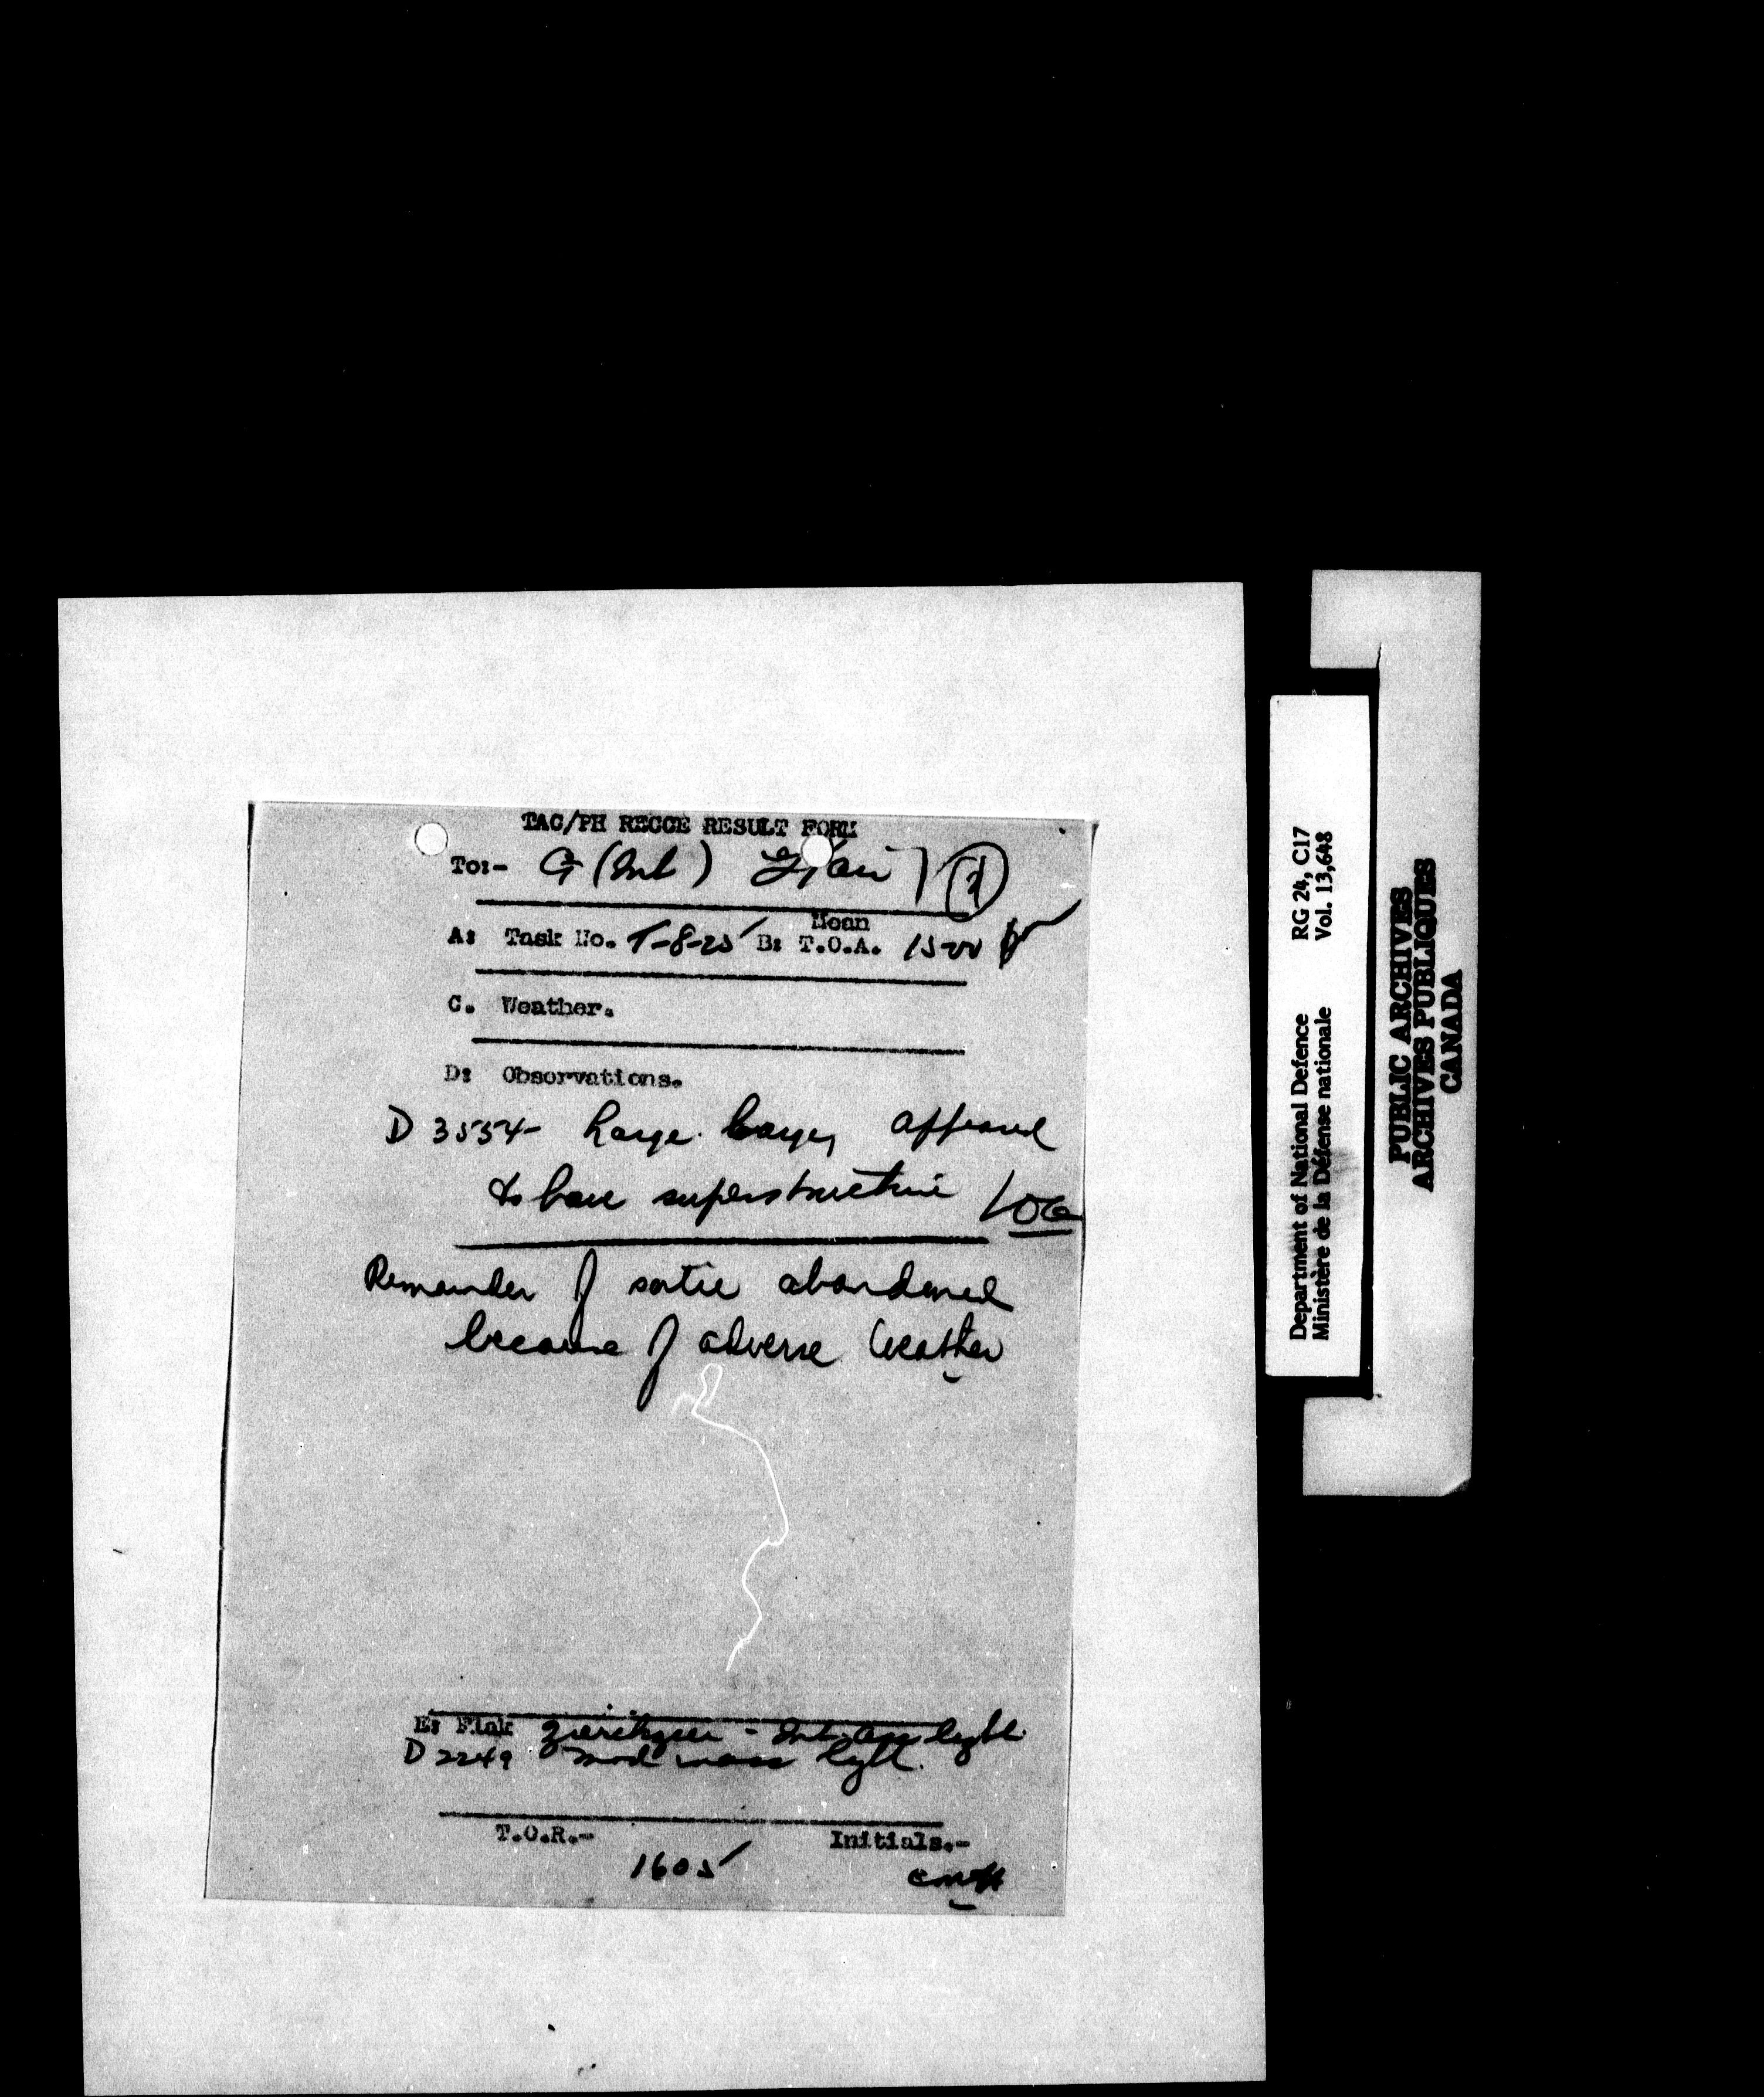 TAC/PH RECCE RESULT FORM
To:- G (Int) G (air) 2
Mean
A: Task No. T-8-25 B: T.O.A. 1500
C. Weather.
D: Observations.
D 3554 - Large barge, appeared
to have superstructure
Remainder of sortie abandoned
because of adverse weather
E: Flak Zierikzee - Int. acc light
D 2249 mod inacc light.
T.O.R.- Initials.-
1605
Department of National Defence RG 24, C17
Ministère de la Défense nationale Vol. 13,648
PUBLIC ARCHIVES
ARCHIVES PUBLIQUES
CANADA